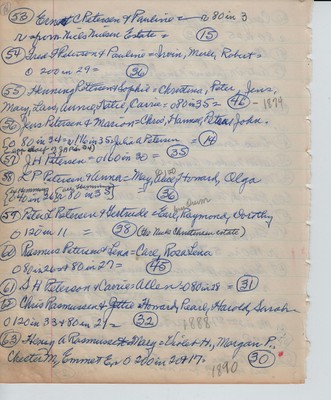 (53) Ernest C Petersen & Pauline = a 80 in 3
r = from Niels Nielsen Estate = (15)
(54) Fred F Peterson & Pauline = Irvin, Merle, Robert =
O 200 in 29 = (36)
(55) Henning Petersen & Sophie = Christena, Peter, Jens,
Mary, Lars, Annie, Katie, Carrie = 080 in 35 = (46) - 1879
(56) Jens Petersen & Marion = Chris, Hanna, Peter & John.
O a 80 in 34 = r 116 in 35: Julia Petersen = (14)
(57) J H Petersen = 0160 in 30 = (35)
(58) L P Petersen & Anna = May, Howard, Olga
O 40 in 36 & a 80 in 35 (36)
(59) Peter L Petersen & Gertrude = Earl, Raymond, Dorothy
O 120 in 11 = (38) (Chr Munk Christensen estate)
(60) Rasmus Petersen & Lena = Carl, Rosa Lena
O 80 in 26 & 80 in 27 = (45)
(61) S H Peterson & Carrie = Allen = 080 in 28 = (31)
(62) Chris Rasmussen & Jettie = Howard, Pearl, Harold, Sarah
O 120 in 33 & 80 in 21 = (32) 1888
(63) Henry A Rasmussen & Mary = Viola H., Morgan P.,
Chester M, Emmet E, = O 200 in 20 & 17 = (30)
1890